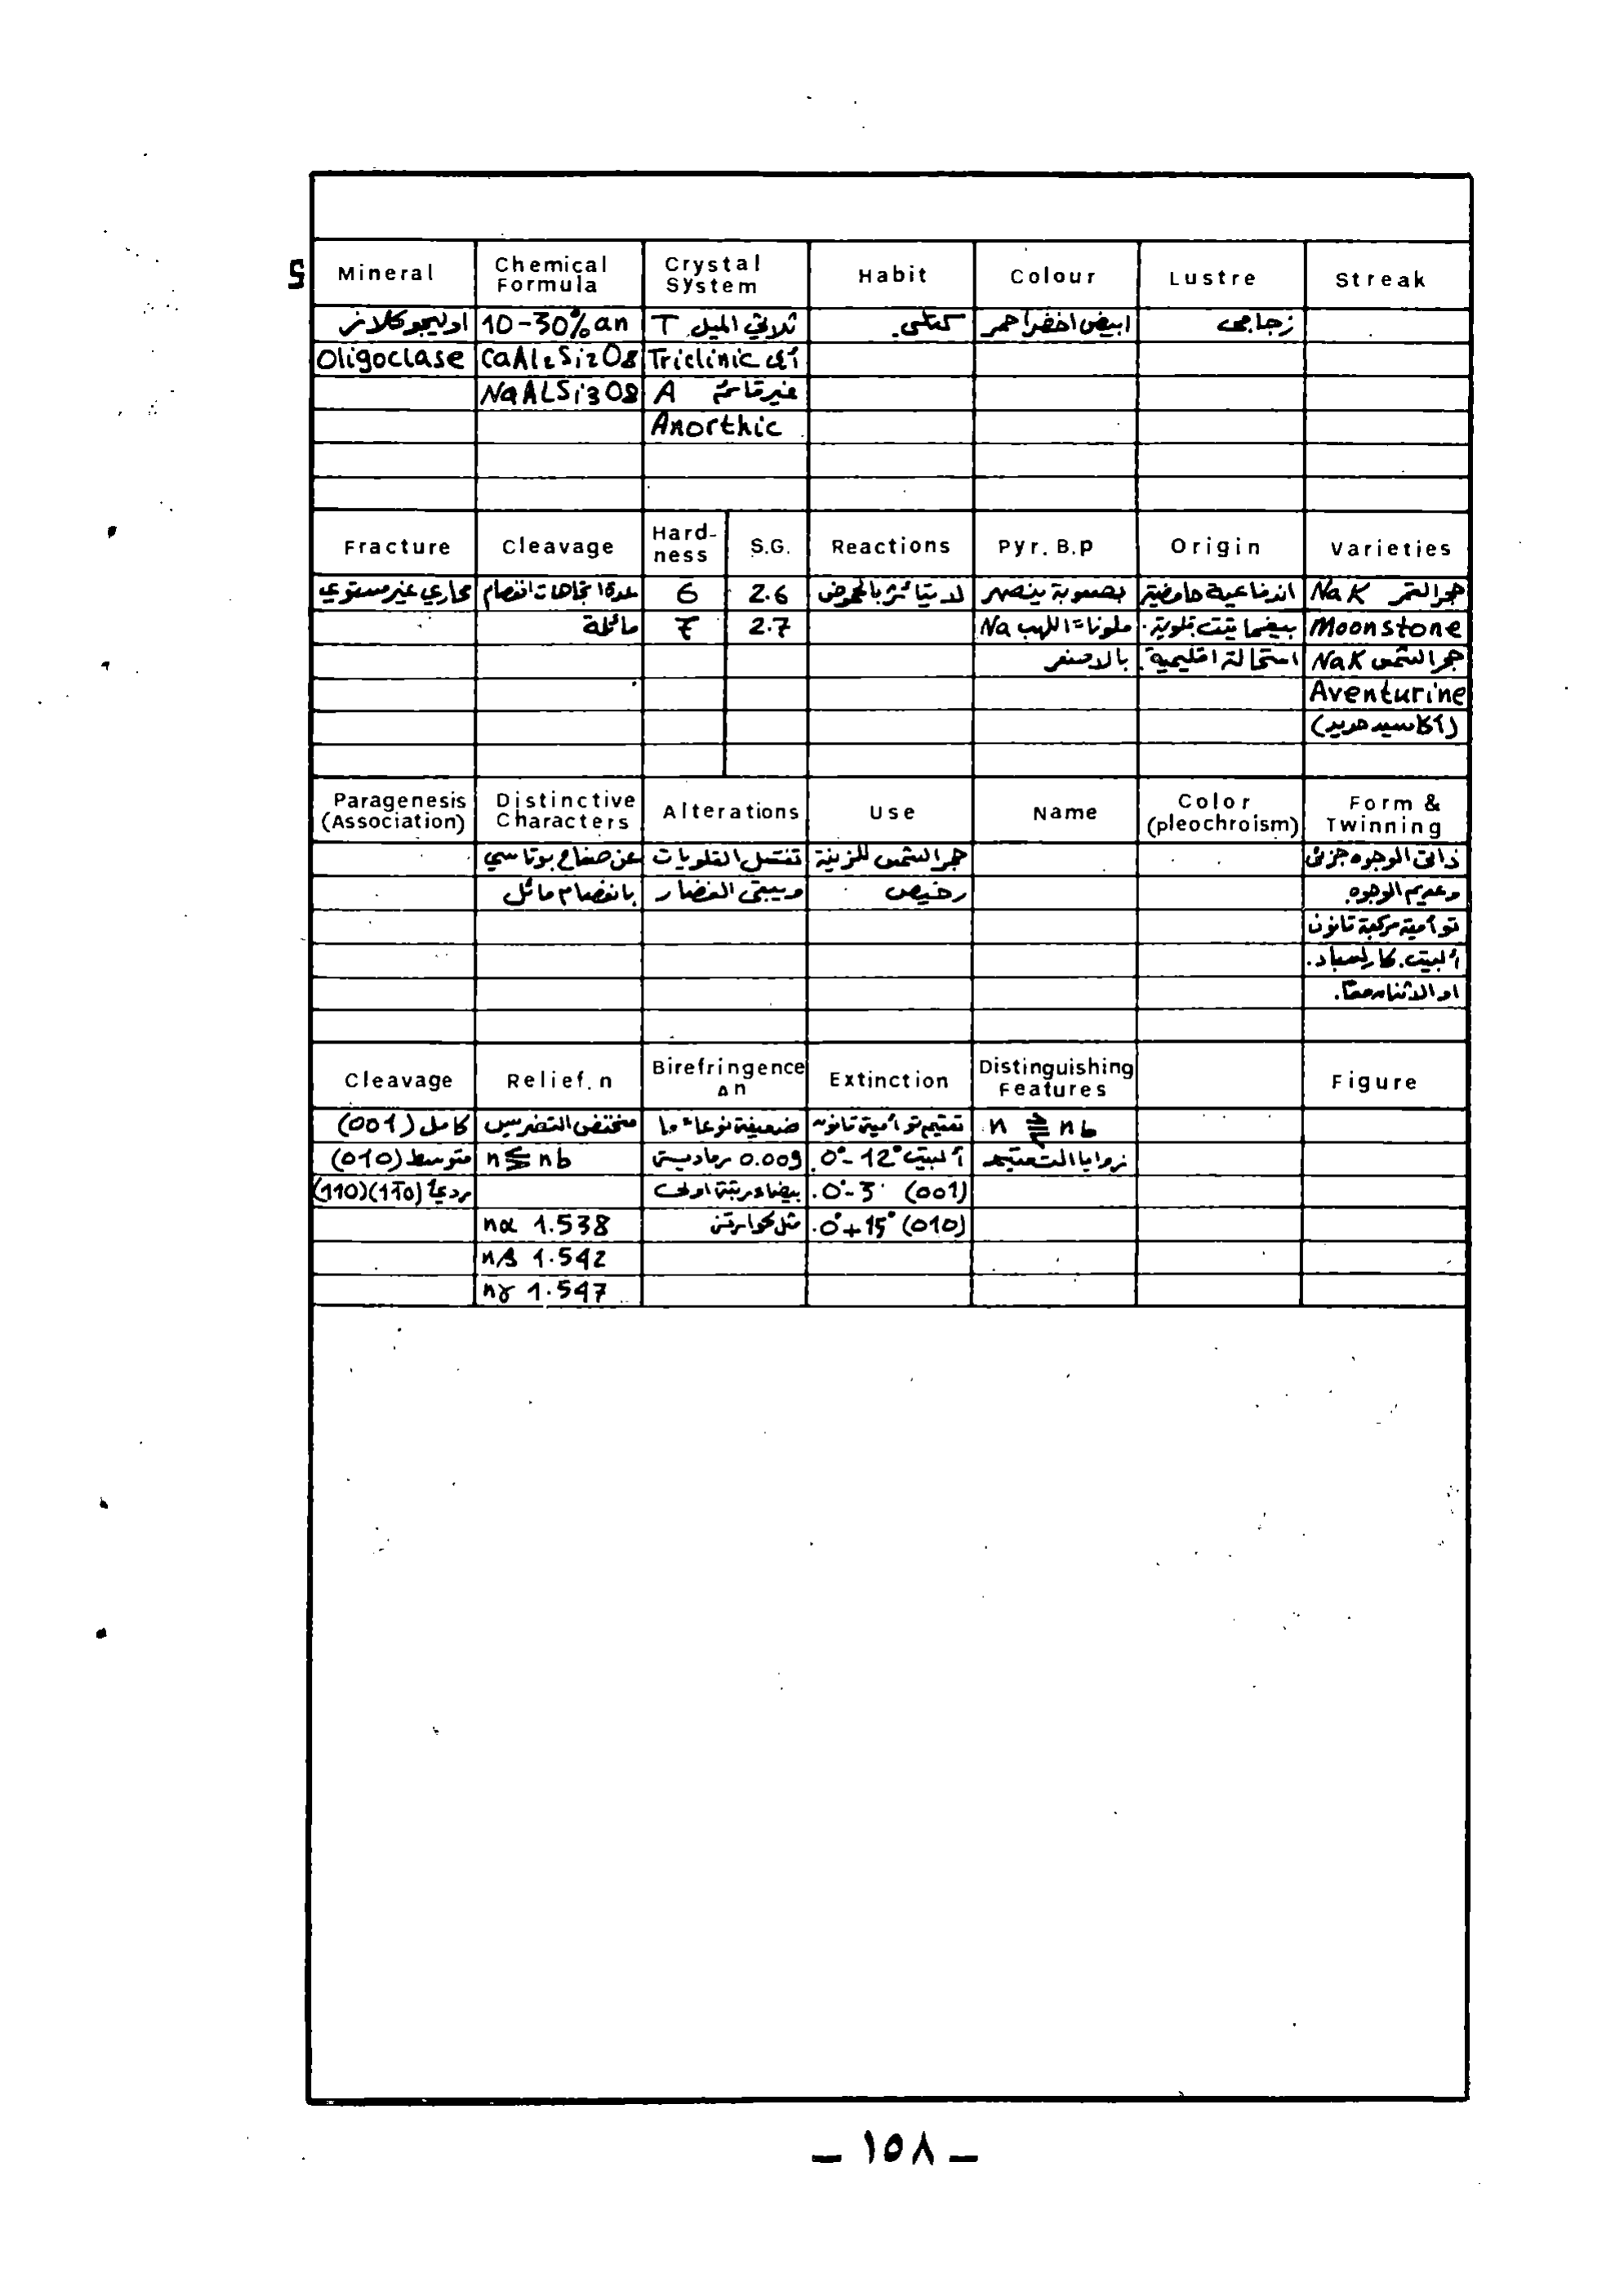 5
Mineral | Chemical Formula | Crystal System | Habit | Colour | Lustre | Streak
اوليجوكلاز | 10-30% an | ثلاثي الميل T | كتلي. | ابيض اخضر احمر | زجاجي
Oligoclase | CaAl2Si2O8 | Triclinic أى
NaALSi3O8 | غير قائم A
Anorthic
Fracture | Cleavage | Hard-ness | S.G. | Reactions | Pyr. B.p | Origin | Varieties
محاري غير مستوي | عدة اتجاهات انفصام | 6 | 2.6 | لا يتأثر بالحموض | بصعوبة ينصهر | اندفاعية حامضية | حجر القمر NaK
مائلة | 7 | 2.7 | ملونا اللهب Na | بيغماتيت قلوية. | Moonstone
بالاصفر | استحالة اقليمية. | حجر الشمس NaK
Aventurine
(أكاسيد حديد)
Paragenesis (Association) | Distinctive Characters | Alterations | Use | Name | Color (pleochroism) | Form & Twinning
عن صفاح بوتاسي | تغتسل القلويات | حجر الشمس للزينة | ذاتي الوجوه جزئي
بانفصام مائل | ويبقى الغضار | رخيص | وعديم الوجوه.
توأمية مركبة قانون
ألبيت. كارلسباد.
او الاثنان معاً.
Cleavage | Relief. n | Birefringence Δn | Extinction | Distinguishing Features | Figure
كامل (001) | منخفض التضريس | ضعيفة نوعاً ما | تعتيم توأمية قانون | n ≧ nb
متوسط (010) | n ≦ nb | 0.009 رمادية | ألبيت 0°-12°. | زوايا التعتيم
رديء (110)(1͞10) | بيضاء رتبة اولى | 0°-3° (001).
nα 1.538 | مثل كوارتز | 0°+15° (010).
nβ 1.542
nγ 1.547
– ١٥٨ –